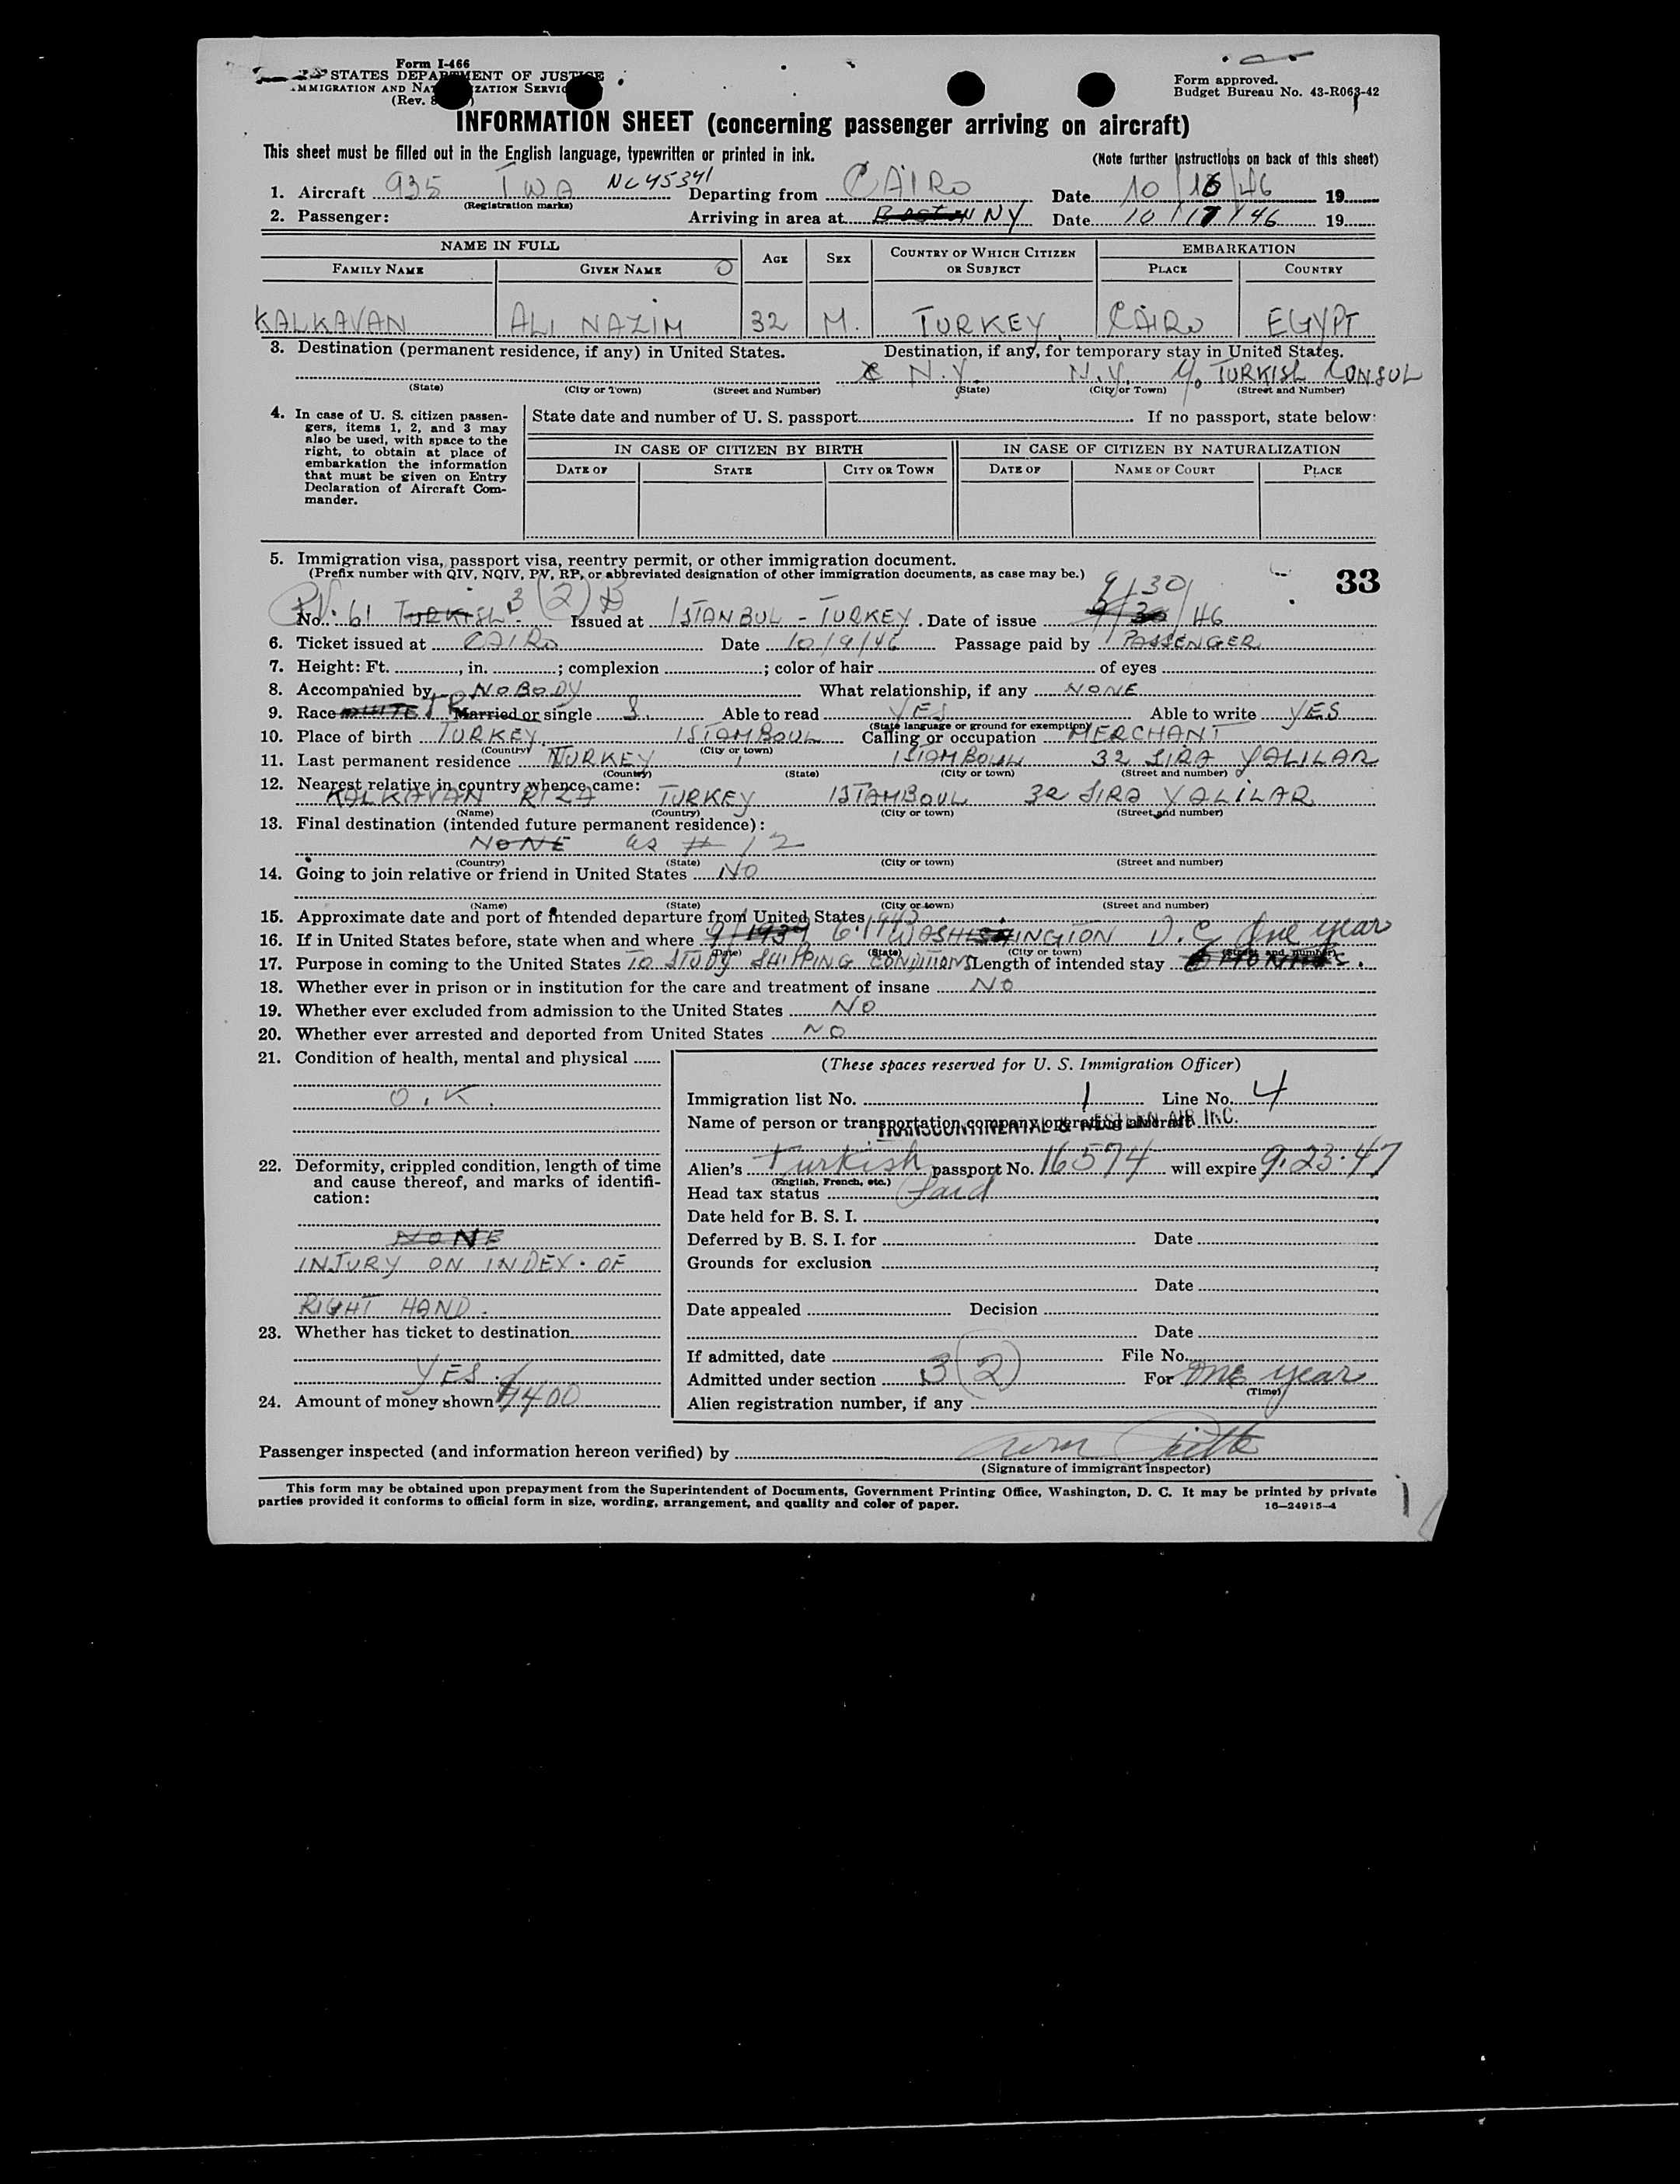 Form I-466
STATES DEPARTMENT OF JUSTICE
IMMIGRATION AND NATURALIZATION SERVICE
(Rev.
Form approved.
Budget Bureau No. 43-R063-42
INFORMATION SHEET (concerning passenger arriving on aircraft)
This sheet must be filled out in the English language, typewritten or printed in ink.
(Note further instructions on back of this sheet)
1. Aircraft 935 TWA NC45341 Departing from CAIRO Date 10/16/46 19
(Registration marks)
2. Passenger: Arriving in area at Boston NY Date 10/17/46 19
NAME IN FULL AGE SEX COUNTRY OF WHICH CITIZEN OR SUBJECT EMBARKATION
FAMILY NAME GIVEN NAME PLACE COUNTRY
KALKAVAN ALI NAZIM 32 M. TURKEY CAIRO EGYPT
3. Destination (permanent residence, if any) in United States. Destination, if any, for temporary stay in United States.
N.Y. N.Y. c/o TURKISH CONSUL
(State) (City or Town) (Street and Number) (State) (City or Town) (Street and Number)
4. In case of U. S. citizen passengers, items 1, 2, and 3 may also be used, with space to the right, to obtain at place of embarkation the information that must be given on Entry Declaration of Aircraft Commander.
State date and number of U. S. passport If no passport, state below:
IN CASE OF CITIZEN BY BIRTH IN CASE OF CITIZEN BY NATURALIZATION
DATE OF STATE CITY OR TOWN DATE OF NAME OF COURT PLACE
5. Immigration visa, passport visa, reentry permit, or other immigration document.
(Prefix number with QIV, NQIV, PV, RP, or abbreviated designation of other immigration documents, as case may be.)
33
9/30/
PV. 3(2)B
No. 61 TURKISH Issued at ISTANBUL - TURKEY. Date of issue 9/30/46
6. Ticket issued at CAIRO Date 10/9/46 Passage paid by PASSENGER
7. Height: Ft. , in. ; complexion ; color of hair of eyes
8. Accompanied by NOBODY What relationship, if any NONE
9. Race WHITE Married or single S. Able to read YES Able to write YES
(State language or ground for exemption)
10. Place of birth TURKEY ISTAMBOUL Calling or occupation MERCHANT
(Country) (City or town)
11. Last permanent residence TURKEY ISTAMBOUL 32 SIRA YALILAR
(Country) (State) (City or town) (Street and number)
12. Nearest relative in country whence came:
KALKAVAN RIZA TURKEY ISTAMBOUL 32 SIRA YALILAR
(Name) (Country) (City or town) (Street and number)
13. Final destination (intended future permanent residence):
NONE as # 12
(Country) (State) (City or town) (Street and number)
14. Going to join relative or friend in United States NO
(Name) (State) (City or town) (Street and number)
15. Approximate date and port of intended departure from United States
16. If in United States before, state when and where 9/1939 WASHINGTON D.C. One year
(Date) (State) (City or town) (Street and number)
17. Purpose in coming to the United States TO STUDY SHIPPING CONDITIONS Length of intended stay 6 MONTHS.
18. Whether ever in prison or in institution for the care and treatment of insane NO
19. Whether ever excluded from admission to the United States NO
20. Whether ever arrested and deported from United States NO
21. Condition of health, mental and physical
O.K.
22. Deformity, crippled condition, length of time and cause thereof, and marks of identification:
NONE
INJURY ON INDEX. OF
RIGHT HAND.
23. Whether has ticket to destination
YES
24. Amount of money shown $1400
(These spaces reserved for U. S. Immigration Officer)
Immigration list No. 1 Line No. 4
Name of person or transportation company operating aircraft TRANSCONTINENTAL & WESTERN AIR INC.
Alien's Turkish passport No. 16574 will expire 9.23.47
(English, French, etc.)
Head tax status Paid
Date held for B. S. I.
Deferred by B. S. I. for Date
Grounds for exclusion
Date
Date appealed Decision
Date
If admitted, date File No.
Admitted under section 3(2) For one year
(Time)
Alien registration number, if any
Passenger inspected (and information hereon verified) by
(Signature of immigrant inspector)
This form may be obtained upon prepayment from the Superintendent of Documents, Government Printing Office, Washington, D. C. It may be printed by private
parties provided it conforms to official form in size, wording, arrangement, and quality and color of paper.
16—24915-4